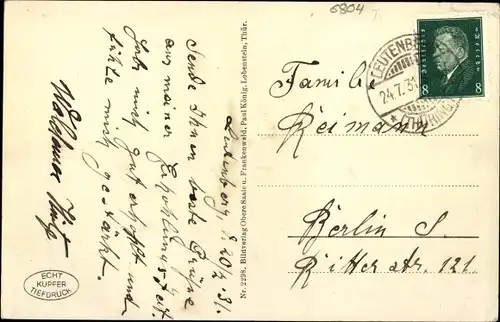 6804
LEUTENBERG
24.7.31
(THÜRINGEN)
Deutsches Reich
8 8
Familie
Reimann
Berlin S.
Ritterstr. 121.
Nr. 2298. Bildverlag Obere Saale u. Frankenwald, Paul König, Lobenstein, Thür.
Leutenberg, d. 20/7.31.
Sende Ihnen beste Grüße
aus meiner Erholungszeit.
Habe mich gut erholt und
fühle mich gestärkt.
ECHT
KUPFER
TIEFDRUCK